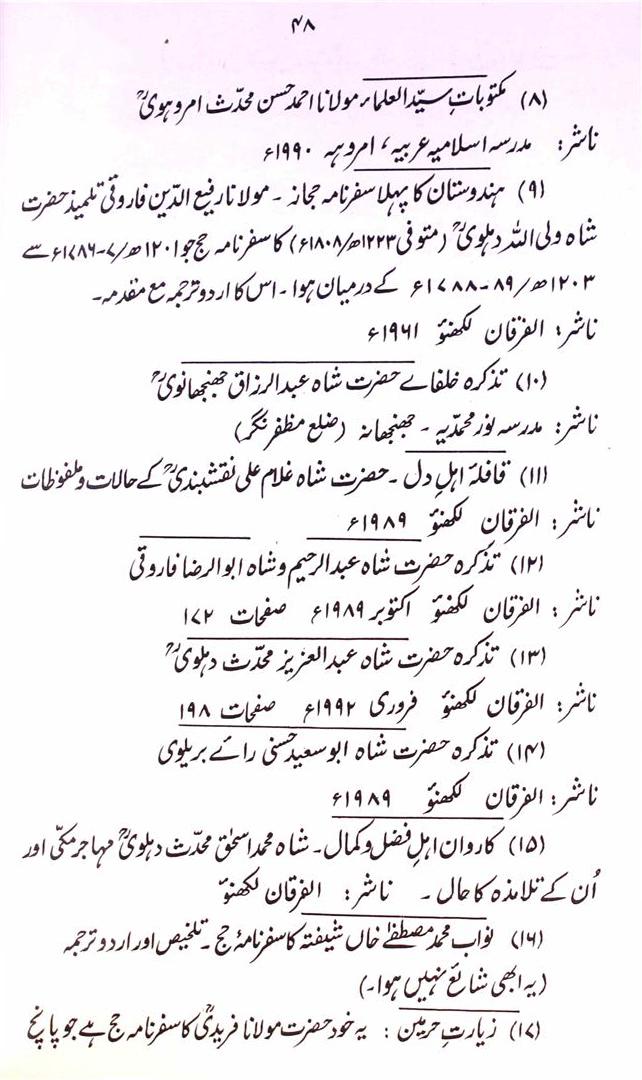 ۴۸
(۸) مکتوبات سیّد العلماء مولانا احمد حسن محدّث امروہویؒ
ناشر: مدرسہ اسلامیہ عربیہ، امروہہ ۱۹۹۰ء
(۹) ہندوستان کا پہلا سفرنامہ حجاز ۔ مولانا رفیع الدّین فاروقی تلمیذ حضرت
شاہ ولی اللہ دہلویؒ (متوفی ۱۲۲۳ھ/۱۸۰۸ء) کا سفرنامہ حج جو ۱۲۰۱ھ/۷-۱۷۸۶ء سے
۱۲۰۳ھ/۸۹-۱۷۸۸ء کے درمیان ہوا ۔ اس کا اردو ترجمہ مع مقدمہ۔
ناشر: الفرقان لکھنؤ ۱۹۶۱ء
(۱۰) تذکرہ خلفاے حضرت شاہ عبد الرزاق جھنجھانویؒ
ناشر: مدرسہ نور محمدّیہ ۔ جھنجھانہ (ضلع مظفر نگر)
(۱۱) قافلۂ اہلِ دل ۔ حضرت شاہ غلام علی نقشبندیؒ کے حالات و ملفوظات
ناشر: الفرقان لکھنؤ ۱۹۸۹ء
(۱۲) تذکرہ حضرت شاہ عبد الرحیم و شاہ ابوالرضا فاروقی
ناشر: الفرقان لکھنؤ اکتوبر ۱۹۸۹ء صفحات ۱۷۲
(۱۳) تذکرہ حضرت شاہ عبد العزیز محدّث دہلویؒ
ناشر: الفرقان لکھنؤ فروری ۱۹۹۲ء صفحات ۱۹۸
(۱۴) تذکرہ حضرت شاہ ابو سعید حسنی رائے بریلوی
ناشر: الفرقان لکھنؤ ۱۹۸۹ء
(۱۵) کاروان اہلِ فضل و کمال۔ شاہ محمد اسحٰق محدّث دہلویؒ مہاجر مکّی اور
اُن کے تلامذہ کا حال ۔ ناشر: الفرقان لکھنؤ
(۱۶) نواب محمد مصطفےٰ خاں شیفتہ کا سفرنامۂ حج ۔ تلخیص اور اردو ترجمہ
(یہ ابھی شائع نہیں ہوا۔)
(۱۷) زیارتِ حرمین : یہ خود حضرت مولانا فریدیؒ کا سفرنامہ حج ہے جو پانچ